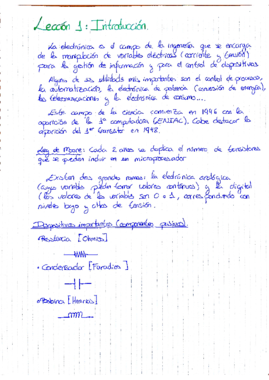 Lección 1: Introducción
La electrónica es el campo de la ingeniería que se encarga
de la manipulación de variables eléctricas (corriente y tensión)
para la gestión de información y para el control de dispositivos.
Alguna de sus utilidades más importantes son el control de procesos,
la automatización, la electrónica de potencia (conversión de energía),
las telecomunicaciones y la electrónica de consumo...
Este campo de la ciencia comienza en 1946 con la
aparición de la 1ª computadora (ENIAC). Cabe destacar la
aparición del 1er transistor en 1948.
Ley de Moore: Cada 2 años se duplica el número de transistores
que se pueden incluir en un microprocesador
Existen dos grandes ramas: la electrónica analógica
(cuyas variables pueden tomar valores continuos) y la digital
(los valores de las variables son 0 o 1, correspondiendo con
niveles bajos y altos de tensión).
Dispositivos importantes (componentes pasivos).
• Resistencia [Ohmios]
• Condensador [Faradios]
• Bobina [Henrios]